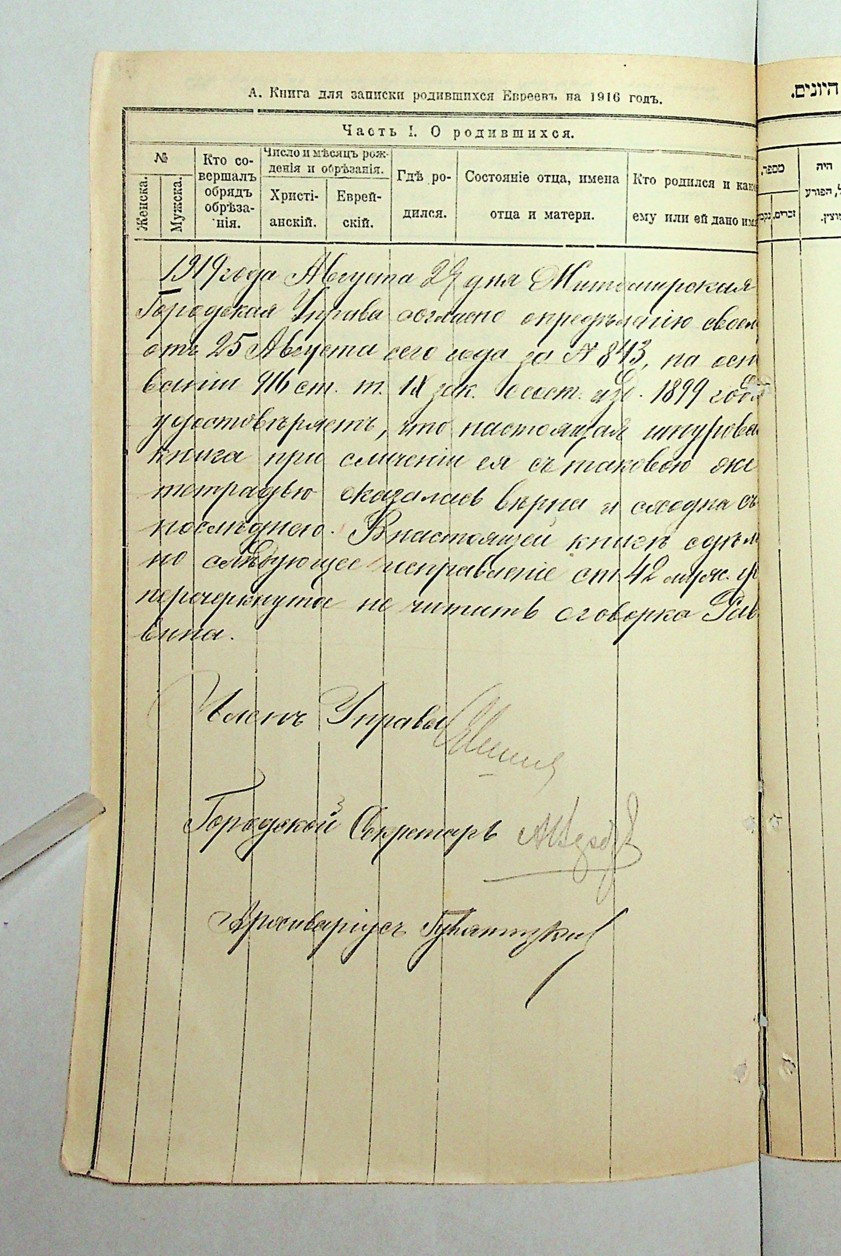 А. Книга для записки родившихся Евреевъ на 1916 годъ.
Часть I. О родившихся.
№
Женска.
Мужска.
Кто со-
вершалъ
обрядъ
обрѣза-
нія.
Число и мѣсяцъ рож-
денія и обрѣзанія.
Христі-
анскій.
Еврей-
скій.
Гдѣ ро-
дился.
Состояніе отца, имена
отца и матери.
Кто родился и како
ему или ей дано им
1919 года Августа 29 дня Житомирская
Городская Управа согласно опредѣленію своем
отъ 25 Августа сего года за № 843, на осн
ваніи 916 ст. т. IX зак. о сост. изд. 1899 года
удостовѣряетъ, что настоящая шнурова
книга при сличеніи ея съ таковою же
тетрадью оказалась вѣрна и сходна съ
послѣднею. В настоящей книгѣ сдѣла
но слѣдующее исправленіе ст. 42 муж.
перечеркнута не читить оговорка Рав
вина.
Членъ Управы
Городской Секретарь
Архиваріусъ
היונים.
מספר.
זכרים.
היה